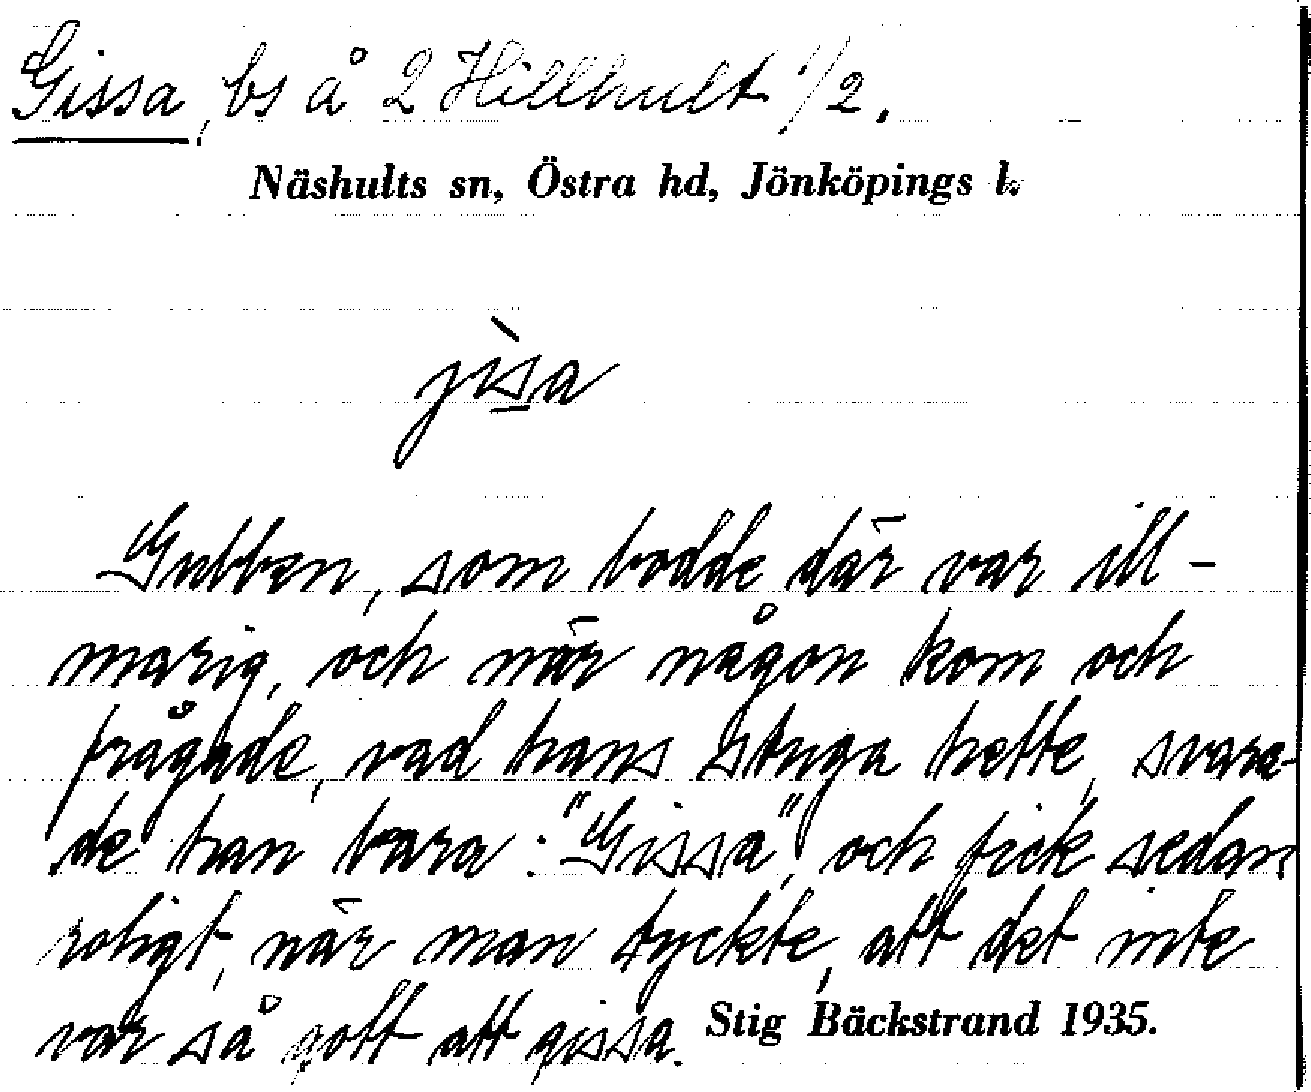 Gissa, bs å 2 Hillhult 1/2.
Näshults sn, Östra hd, Jönköpings l.
jìsa
Gubben, som bodde där var ill-
marig, och när någon kom och
frågade, vad hans stuga hette, svara-
de han bara: "Gissa", och fick sedan
roligt, när man tyckte, att det inte
var så gott att gissa.
Stig Bäckstrand 1935.